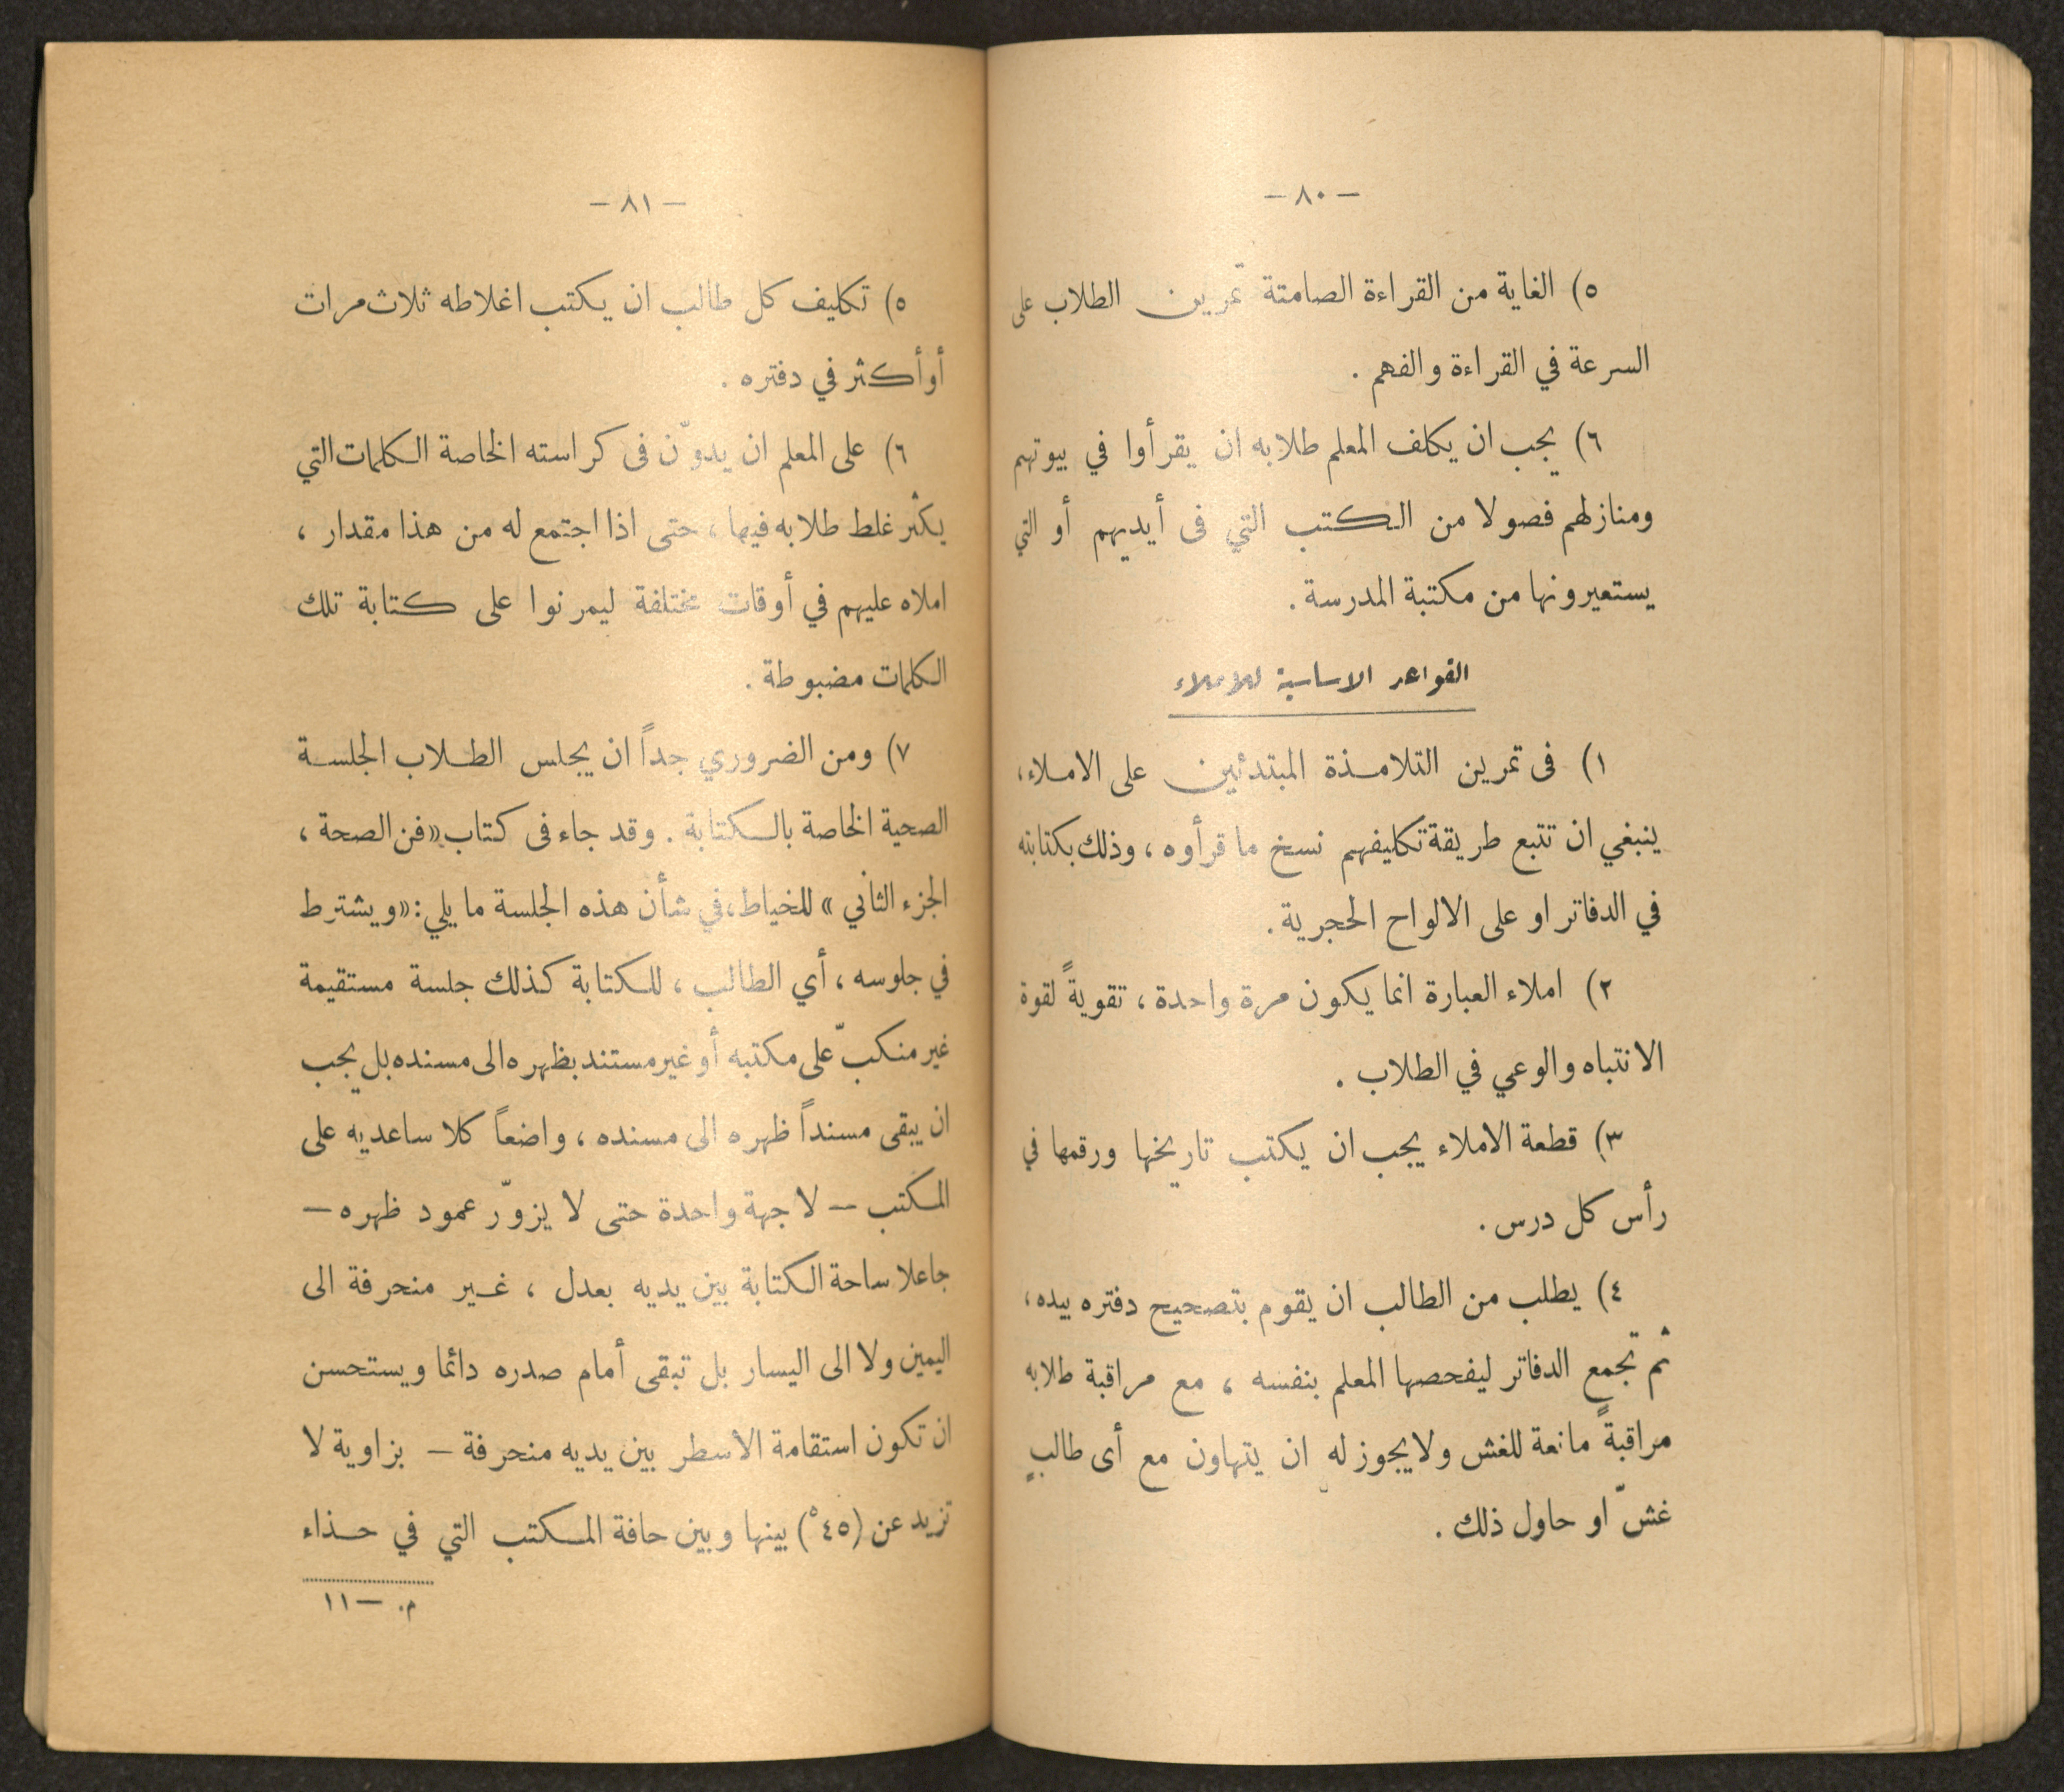 — ٨٠ —
٥) الغاية من القراءة الصامتة تمرين الطلاب على
السرعة في القراءة والفهم .
٦) يجب ان يكلف المعلم طلابه ان يقرأوا في بيوتهم
ومنازلهم فصولا من الكتب التي فى أيديهم أو التي
يستعيرونها من مكتبة المدرسة .
القواعد الاساسية للاملاء
١) فى تمرين التلامذة المبتدئين على الاملاء ،
ينبغي ان تتبع طريقة تكليفهم نسخ ما قرأوه ، وذلك بكتابته
في الدفاتر او على الالواح الحجرية .
٢) املاء العبارة انما يكون مرة واحدة ، تقويةً لقوة
الانتباه والوعي في الطلاب .
٣) قطعة الاملاء يجب ان يكتب تاريخها ورقمها في
رأس كل درس .
٤) يطلب من الطالب ان يقوم بتصحيح دفتره بيده ،
ثم تجمع الدفاتر ليفحصها المعلم بنفسه ، مع مراقبة طلابه
مراقبةً مانعة للغش ولا يجوز له ان يتهاون مع أى طالبٍ
غشّ او حاول ذلك .
— ٨١ —
٥) تكليف كل طالب ان يكتب اغلاطه ثلاث مرات
أو أكثر في دفتره .
٦) على المعلم ان يدوّن فى كراسته الخاصة الكلمات التي
يكثر غلط طلابه فيها ، حتى اذا اجتمع له من هذا مقدار ،
املاه عليهم في أوقات مختلفة ليمرنوا على كتابة تلك
الكلمات مضبوطة .
٧) ومن الضروري جداً ان يجلس الطلاب الجلسة
الصحية الخاصة بالكتابة . وقد جاء فى كتاب «فن الصحة ،
الجزء الثاني » للخياط ، في شأن هذه الجلسة ما يلي : «ويشترط
في جلوسه ، أي الطالب ، للكتابة كذلك جلسة مستقيمة
غير منكبّ على مكتبه أو غير مستند بظهره الى مسنده بل يجب
ان يبقى مسنداً ظهره الى مسنده ، واضعاً كلا ساعديه على
المكتب — لا جهة واحدة حتى لا يزوّر عمود ظهره —
جاعلا ساحة الكتابة بين يديه بعدل ، غير منحرفة الى
اليمين ولا الى اليسار بل تبقى أمام صدره دائما ويستحسن
ان تكون استقامة الاسطر بين يديه منحرفة — بزاوية لا
تزيد عن (٤٥°) بينها وبين حافة المكتب التي في حذاء
م. — ١١